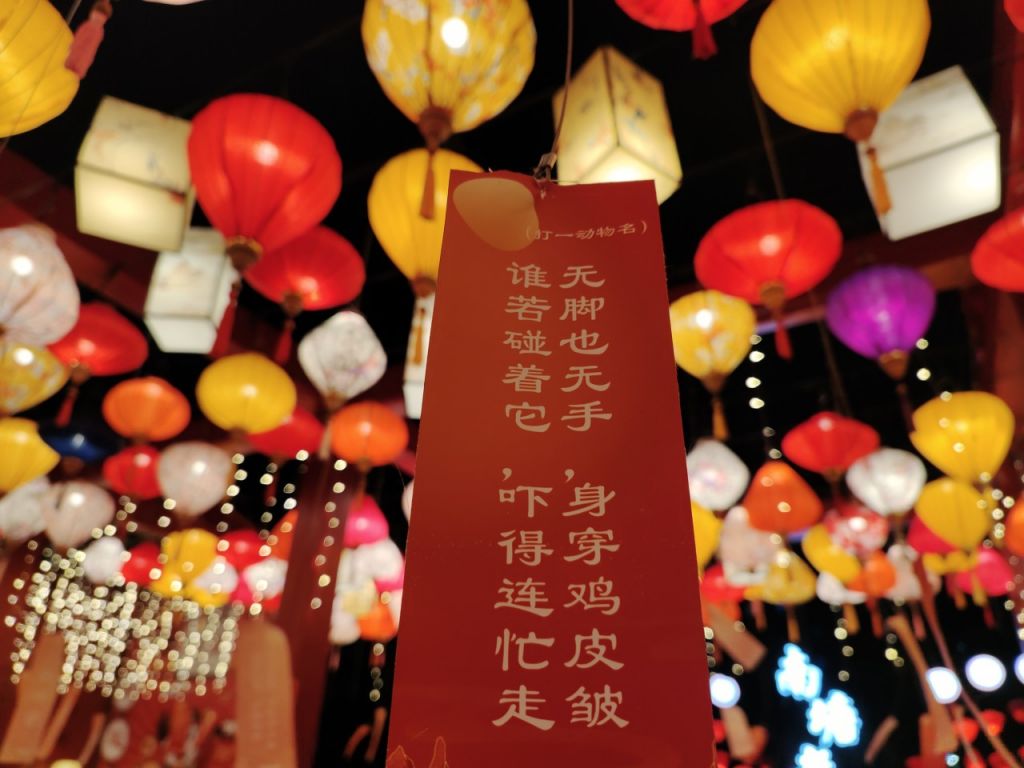 （打一动物名）
无脚也无手，身穿鸡皮皱
谁若碰着它，吓得连忙走